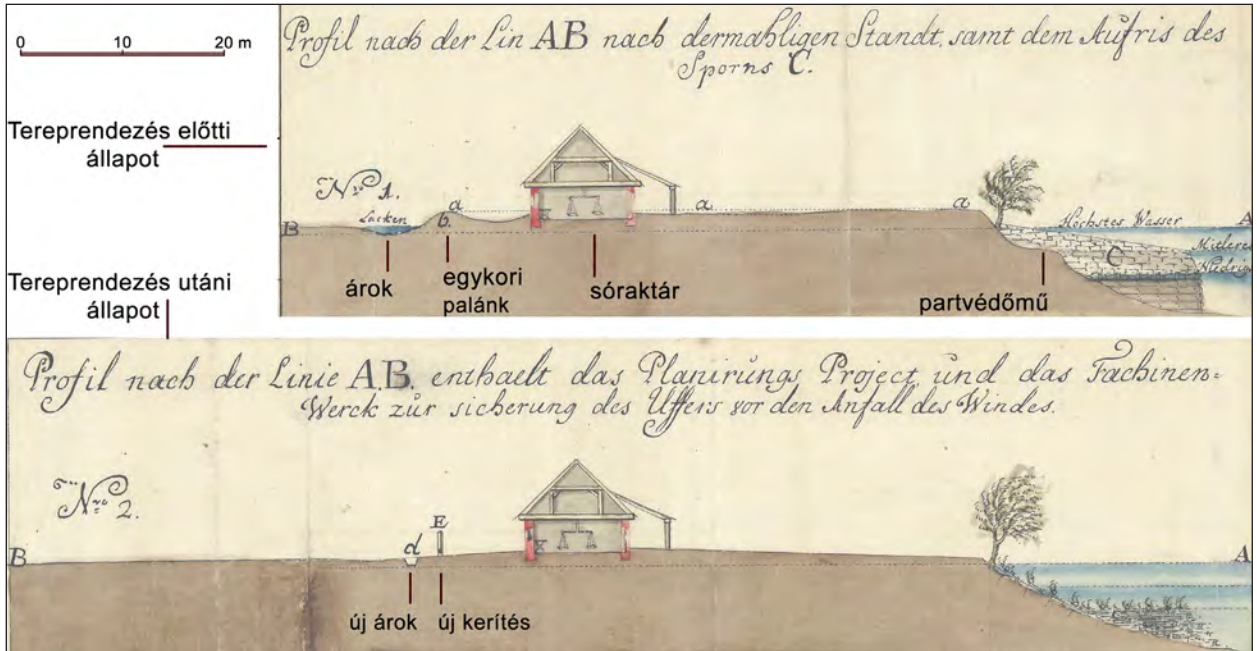 0 10 20 m
Profil nach der Lin AB nach dermahligen Standt, samt dem Aufris des
Sporns C.
Tereprendezés előtti
állapot
Nro 1.
Lacken
a
a
a
b.
B
Höchstes Wasser
A
Mitlere
C
Niedrig
árok
egykori
palánk
sóraktár
partvédőmű
Tereprendezés utáni
állapot
Profil nach der Linie A.B. enthaelt das Planirungs Project, und das Fachinen=
Werck zur sicherung des Uffers vor den Anfall des Windes.
Nro 2.
E
d
X
B
A
új árok
új kerítés